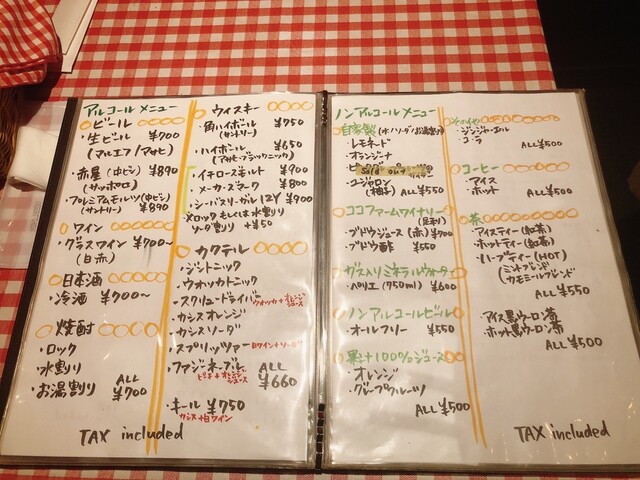 アルコールメニュー
ビール
・生ビール ¥700
(マルエフ/アサヒ)
・赤星(中ビン) ¥890
(サッポロ)
・プレミアムモルツ(中ビン)
(サントリー) ¥890
ワイン
・グラスワイン ¥700〜
(白赤)
日本酒
・冷酒 ¥700〜
焼酎
・ロック
・水割り
・お湯割り ALL ¥700
ウィスキー
・角ハイボール ¥750
(サントリー)
・ハイボール ¥650
(アサヒ・ブラックニッカ)
・イチローズモルト ¥900
・メーカーズマーク ¥800
・シーバスリーガル 12Y ¥900
*ロックもしくは水割り
ソーダ割り +¥50
カクテル
・ジントニック
・ウォッカトニック
・スクリュードライバー ウォッカ+オレンジジュース
・カシスオレンジ
・カシスソーダ
・スプリッツァー 白ワイン+ソーダ
・ファジーネーブル ALL
ピーチ+オレンジジュース ¥660
・キール ¥750
カシス+白ワイン
TAX included
ノンアルコールメニュー
自家製
・レモネード
・オランジーナ
Sold out
(柚子) ALL ¥550
ココファームワイナリー
(足利)
・ブドウジュース(赤) ¥700
・ブドウ酢 ¥550
ガス入りミネラルウォーター
・ペリエ(750ml) ¥600
ノンアルコールビール
・オールフリー ¥550
果汁100%ジュース
・オレンジ
・グレープフルーツ
ALL ¥500
その他
・ジンジャーエール
・コーラ
ALL ¥500
コーヒー
・アイス
・ホット ALL ¥500
茶
・アイスティー(紅茶)
・ホットティー(紅茶)
・ハーブティー(HOT)
(ミントブレンド
カモミールブレンド)
ALL ¥550
・アイス黒ウーロン茶
・ホット黒ウーロン茶
ALL ¥500
TAX included